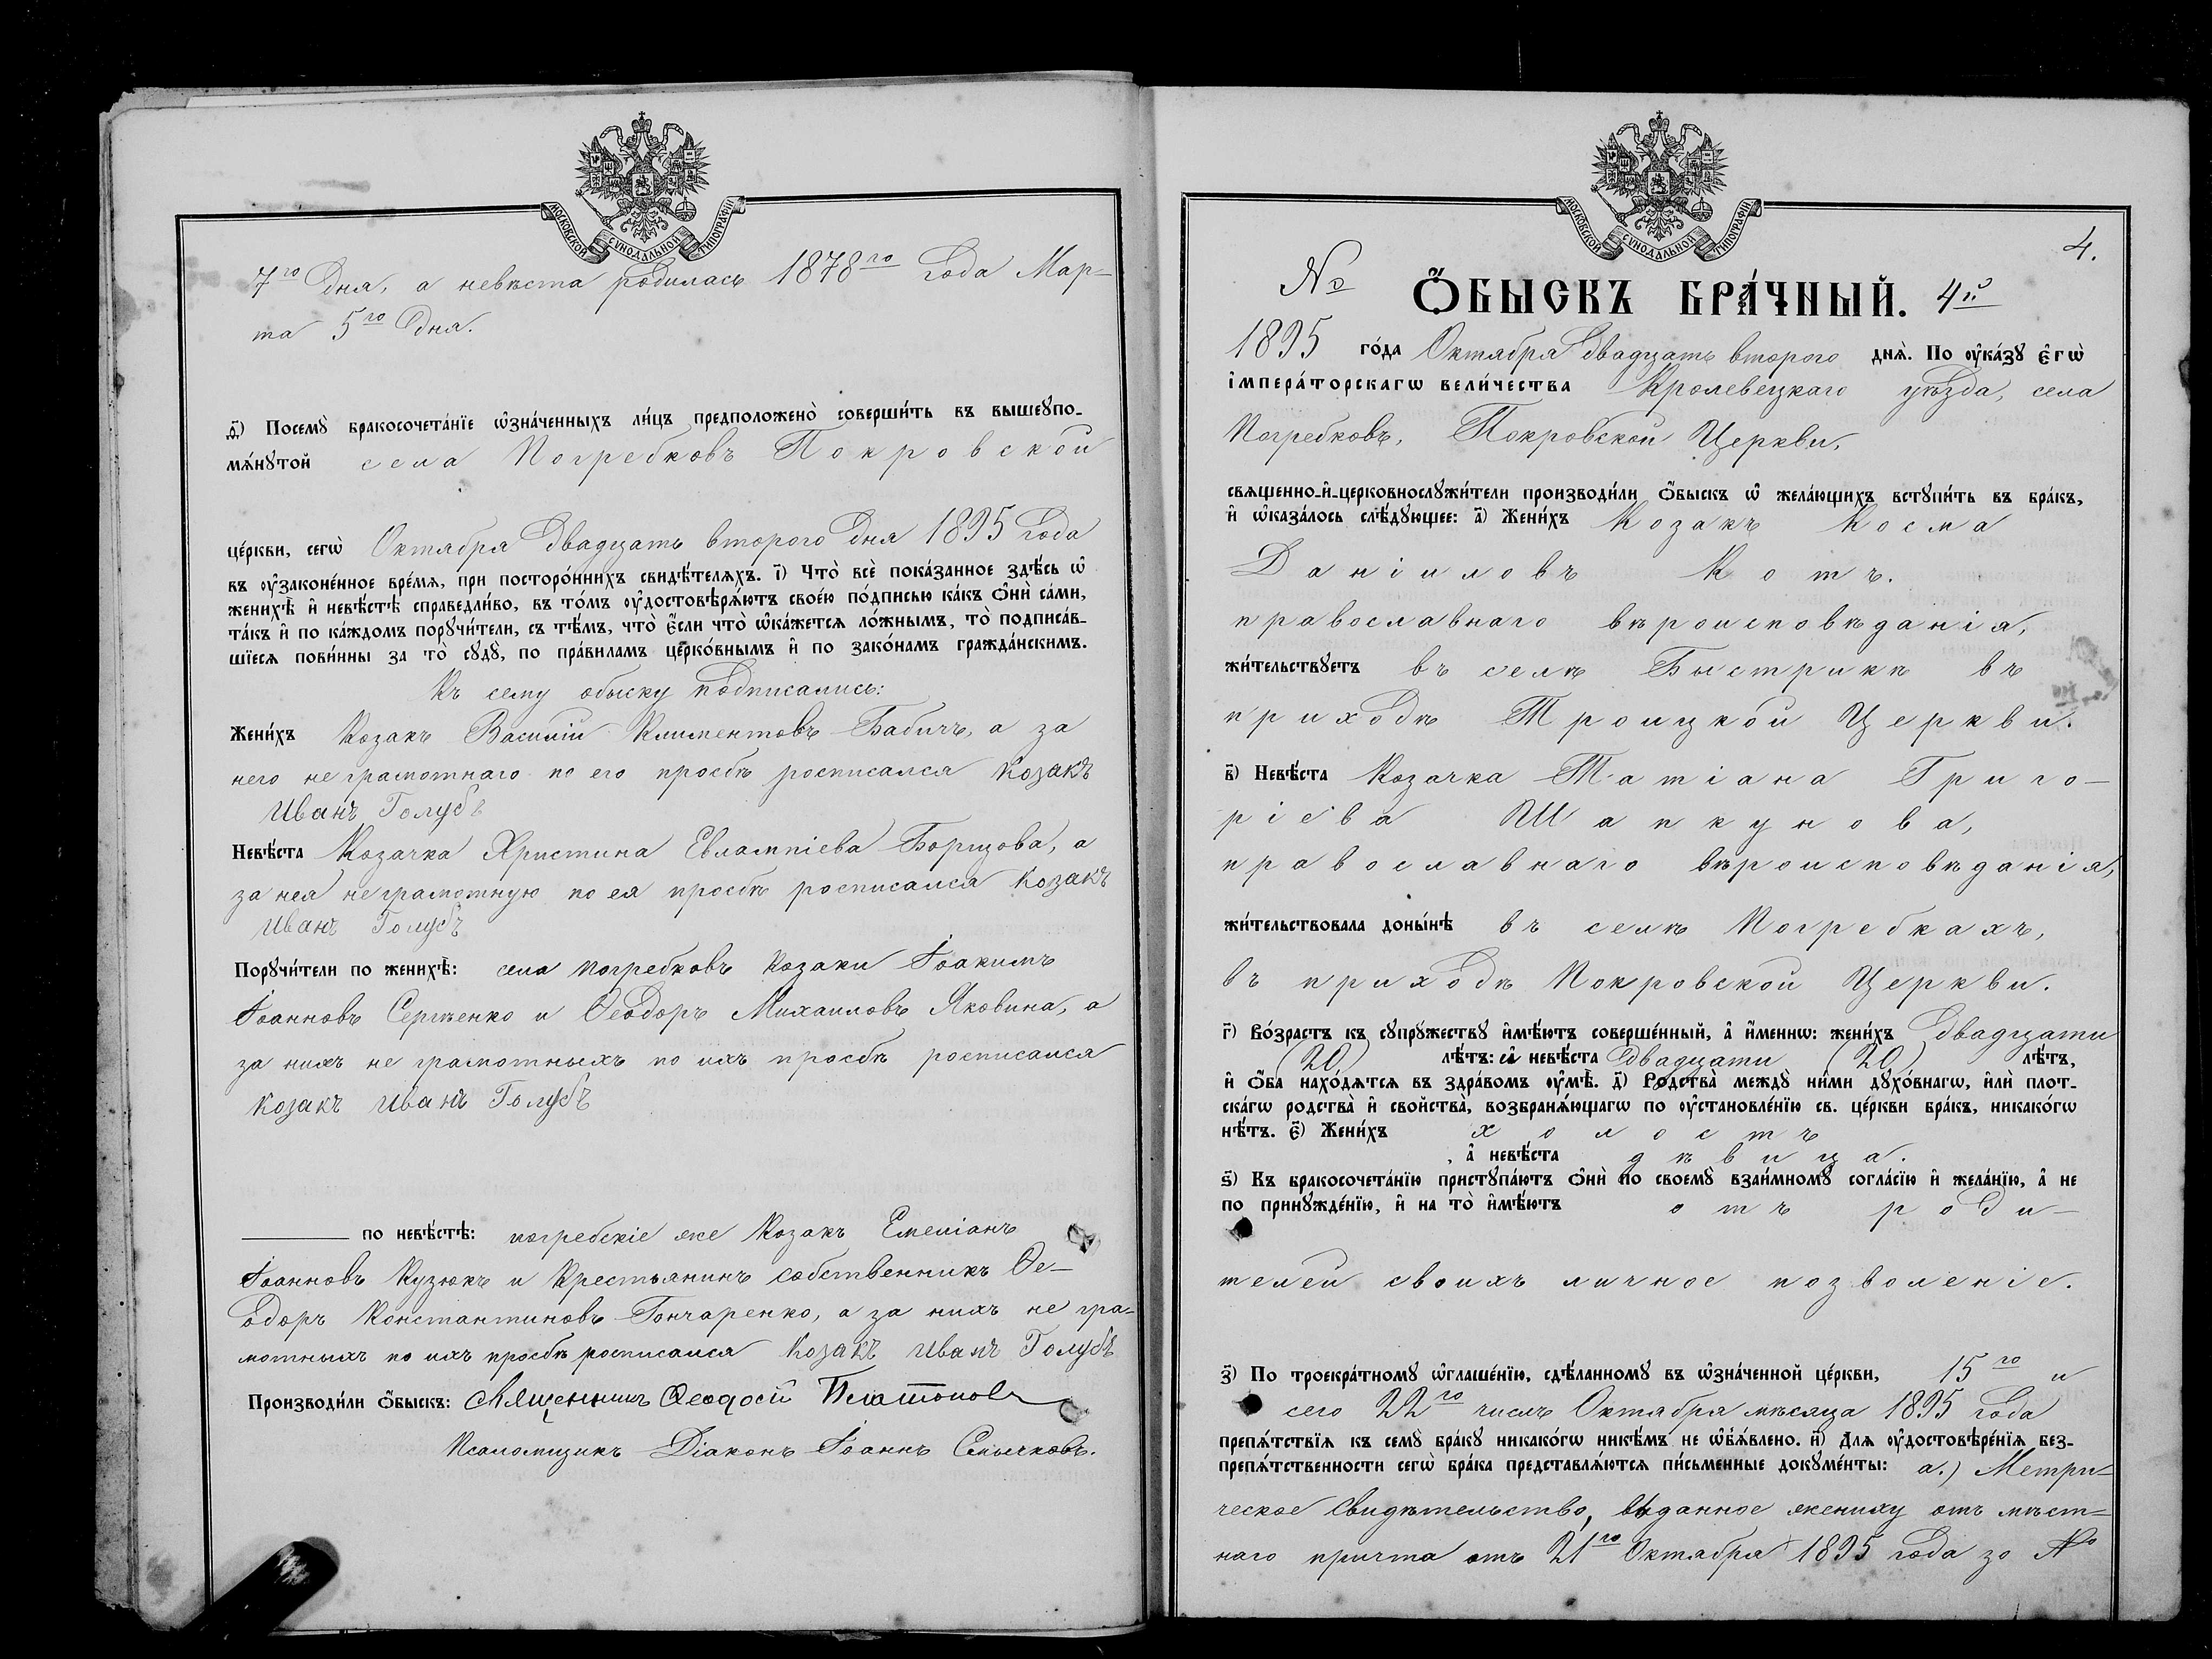 МОСКОВСКОЙ СѴНОДАЛЬНОЙ ТИПОГРАФІИ
7го дня, а невѣста родилась 1878го года Мар-
та 5го дня.
ѳ҃) Посемꙋ̀ бракосочета́нїе ѡ҆зна́ченныхъ ли́цъ предположено̀ соверши́ть въ вышеꙋпо-
мѧ́нꙋтой села Погребковъ Покровской
це́ркви, сегѡ̀ Октября двадцать второго дня 1895 года
въ ᲂу҆законе́нное вре́мѧ, при посторо́ннихъ свидѣ́телѧхъ. і҃) Что̀ всѐ пока́занное здѣ́сь ѡ҆
женихѣ̀ и҆ невѣ́стѣ справедли́во, въ то́мъ ᲂу҆достовѣрѧ́ютъ свое́ю по́дписью ка́къ ѻ҆нѝ са́ми,
та́къ и҆ по ка́ждомъ порꙋчи́тели, съ тѣ́мъ, что̀ є҆́сли что̀ ѡ҆ка́жетсѧ ло́жнымъ, то̀ подписа́в-
шїесѧ пови́нны за то̀ сꙋдꙋ̀, по пра́виламъ церко́внымъ и҆ по зако́намъ гражда́нскимъ.
Къ сему обыску подписались:
Жени́хъ Козакъ Василій Климентовъ Бабичъ, а за
него не грамотнаго по его просьбѣ росписался Козакъ
Иванъ Голубъ
Невѣ́ста Козачка Христина Евлампіева Борщова, а
за нея неграмотную по ея просьбѣ росписался Козакъ
Иванъ Голубъ
Порꙋчи́тели по женихѣ̀: села Погребковъ Козаки Іоакимъ
Іоанновъ Сергѣенко и Ѳеодоръ Михаиловъ Яковина, а
за нихъ не грамотныхъ по ихъ просьбѣ росписался
Козакъ Иванъ Голубъ
по невѣ́стѣ: погребскіе же Козакъ Емеліанъ
Іоанновъ Кузюкъ и Крестьянинъ собственникъ Ѳе-
одоръ Константиновъ Гончаренко, а за нихъ не гра-
мотныхъ по ихъ просьбѣ росписался Козакъ Иванъ Голубъ
Производи́ли ѻ҆́быскъ: Священникъ Ѳеодосій Платоновъ
Псаломщикъ Діаконъ Іоаннъ Смычковъ.
МОСКОВСКОЙ СѴНОДАЛЬНОЙ ТИПОГРАФІИ
4.
№ Ѻ҆́БЫСКЪ БРА́ЧНЫЙ. 4й
1895 го́да Октября двадцать второго днѧ̀. По ᲂу҆ка́зꙋ є҆гѡ̀
і҆мпера́торскагѡ вели́чества Кролевецкаго уѣзда, села
Погребковъ, Покровской Церкви,
свѧщенно-и҆-церковнослꙋжи́тели производи́ли ѻ҆́быскъ ѡ҆ жела́ющихъ встꙋпи́ть въ бра́къ,
и҆ ѡ҆каза́лось слѣ́дꙋющее: а҃) Жени́хъ Козакъ Косма
Даніиловъ Котъ.
православнаго вѣроисповѣданія,
жи́тельствꙋетъ въ селѣ Быстрикѣ въ
приходѣ Троицкой Церкви.
в҃) Невѣ́ста Козачка Татіана Григо-
ріева Шапкунова,
православнаго вѣроисповѣданія,
жи́тельствовала доны́нѣ въ селѣ Погребкахъ,
въ приходѣ Покровской Церкви.
г҃) Во́зрастъ къ сꙋпрꙋ́жествꙋ и҆мѣ́ютъ соверше́нный, а҆ и҆́меннѡ: жени́хъ двадцати
(20) лѣ́тъ: а҆ невѣ́ста двадцати (20) лѣ́тъ,
и҆ ѻ҆́ба нахо́дѧтсѧ въ здра́вомъ ᲂу҆мѣ̀. д҃) Родства̀ междꙋ̀ ни́ми дꙋхо́внагѡ, и҆лѝ плот-
ска́гѡ родства̀ и҆ свойства̀, возбранѧ́ющагѡ по ᲂу҆становле́нїю св. це́ркви бра́къ, никако́гѡ
нѣ́тъ. є҃) Жени́хъ холостъ
, а҆ невѣ́ста дѣвица.
ѕ҃) Къ бракосочета́нїю пристꙋпа́ютъ ѻ҆нѝ по своемꙋ̀ взаи́мномꙋ согла́сїю и҆ жела́нїю, а҆ не
по принꙋжде́нїю, и҆ на то̀ и҆мѣ́ютъ отъ роди-
телей своихъ личное позволеніе.
з҃) По троекра́тномꙋ ѡ҆глаше́нїю, сдѣ́ланномꙋ въ ѡ҆зна́ченной це́ркви, 15го и
сего 22го числъ Октября мѣсяца 1895 года
препѧ́тствїѧ къ семꙋ̀ бра́кꙋ никако́гѡ никѣ́мъ не ѡ҆б̾ѧ́влено. и҃) Для ᲂу҆достовѣре́нїѧ без-
препѧ́тственности сегѡ̀ бра́ка представлѧ́ютсѧ пи́сьменные докꙋме́нты: а.) Метри-
ческое свидѣтельство, выданное жениху отъ мѣст-
наго причта отъ 21го Октября 1895 года за №